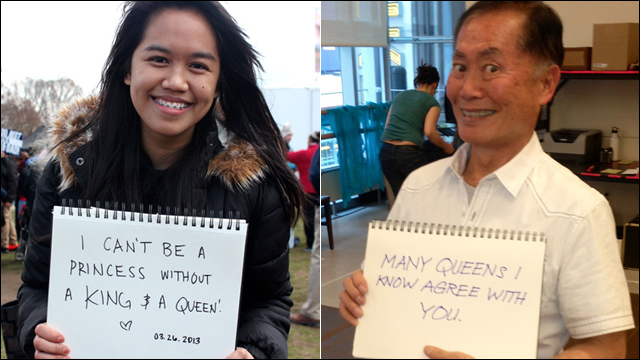 I CAN'T BE A
PRINCESS WITHOUT
A KING & A QUEEN!
♡
03.26.2013
MANY QUEENS I
KNOW AGREE WITH
YOU.